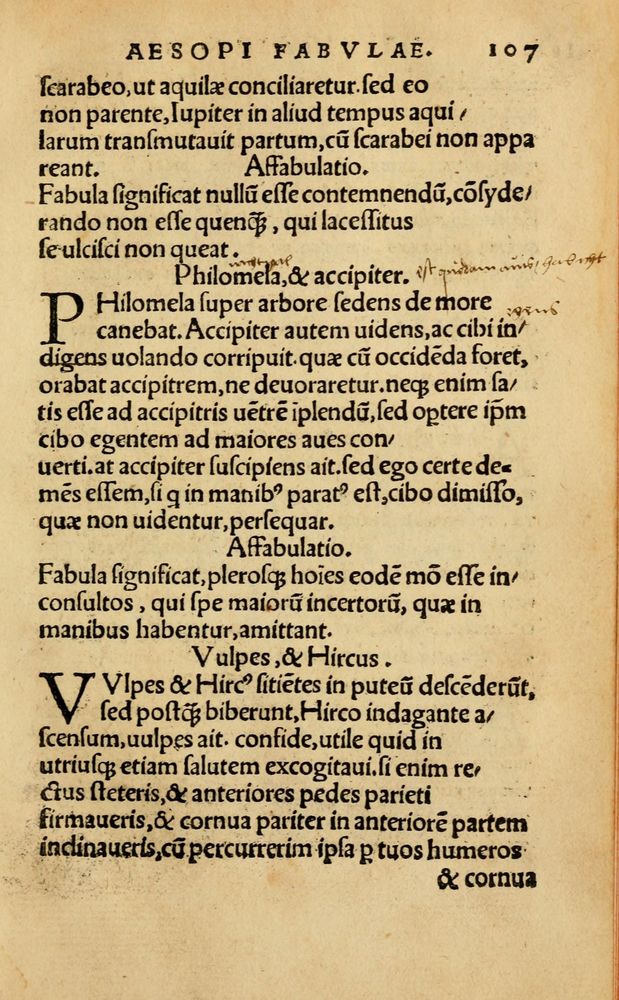 AESOPI FABVLAE. 107
ſcarabeo, ut aquilæ conciliaretur. ſed eo
non parente, Iupiter in aliud tempus aqui/
larum tranſmutauit partum, cũ ſcarabei non appa
reant. Affabulatio.
Fabula ſignificat nullũ eſſe contemnendũ, cõſyde/
rando non eſſe quenq̃, qui laceſſitus
ſe ulciſci non queat.
Philomela, & accipiter. est quidam auis
PHilomela ſuper arbore ſedens de more
canebat. Accipiter autem uidens, ac cibi in/
digens uolando corripuit. quæ cũ occidẽda foret,
orabat accipitrem, ne deuoraretur. neq; enim ſa/
tis eſſe ad accipitris uẽtrẽ ĩplendũ, ſed oꝑtere ip̃m
cibo egentem ad maiores aues con/
uerti. at accipiter ſuſcipiens ait. ſed ego certe de/
mẽs eſſem, ſi q in manibꝰ paratꝰ eſt, cibo dimiſſo,
quæ non uidentur, perſequar.
Affabulatio.
Fabula ſignificat, pleroſq; hoĩes eodẽ mõ eſſe in/
conſultos, qui ſpe maiorũ incertorũ, quæ in
manibus habentur, amittant.
Vulpes, & Hircus.
VVlpes & Hircꝰ ſitiẽtes in puteũ deſcẽderũt,
ſed poſtq̃ biberunt, Hirco indagante a/
ſcenſum, uulpes ait. confide, utile quid in
utriuſq; etiam ſalutem excogitaui. ſi enim re/
ctus ſteteris, & anteriores pedes parieti
firmaueris, & cornua pariter in anteriorẽ partem
inclinaueris, cũ percurrerim ipſa ꝑ tuos humeros
& cornua